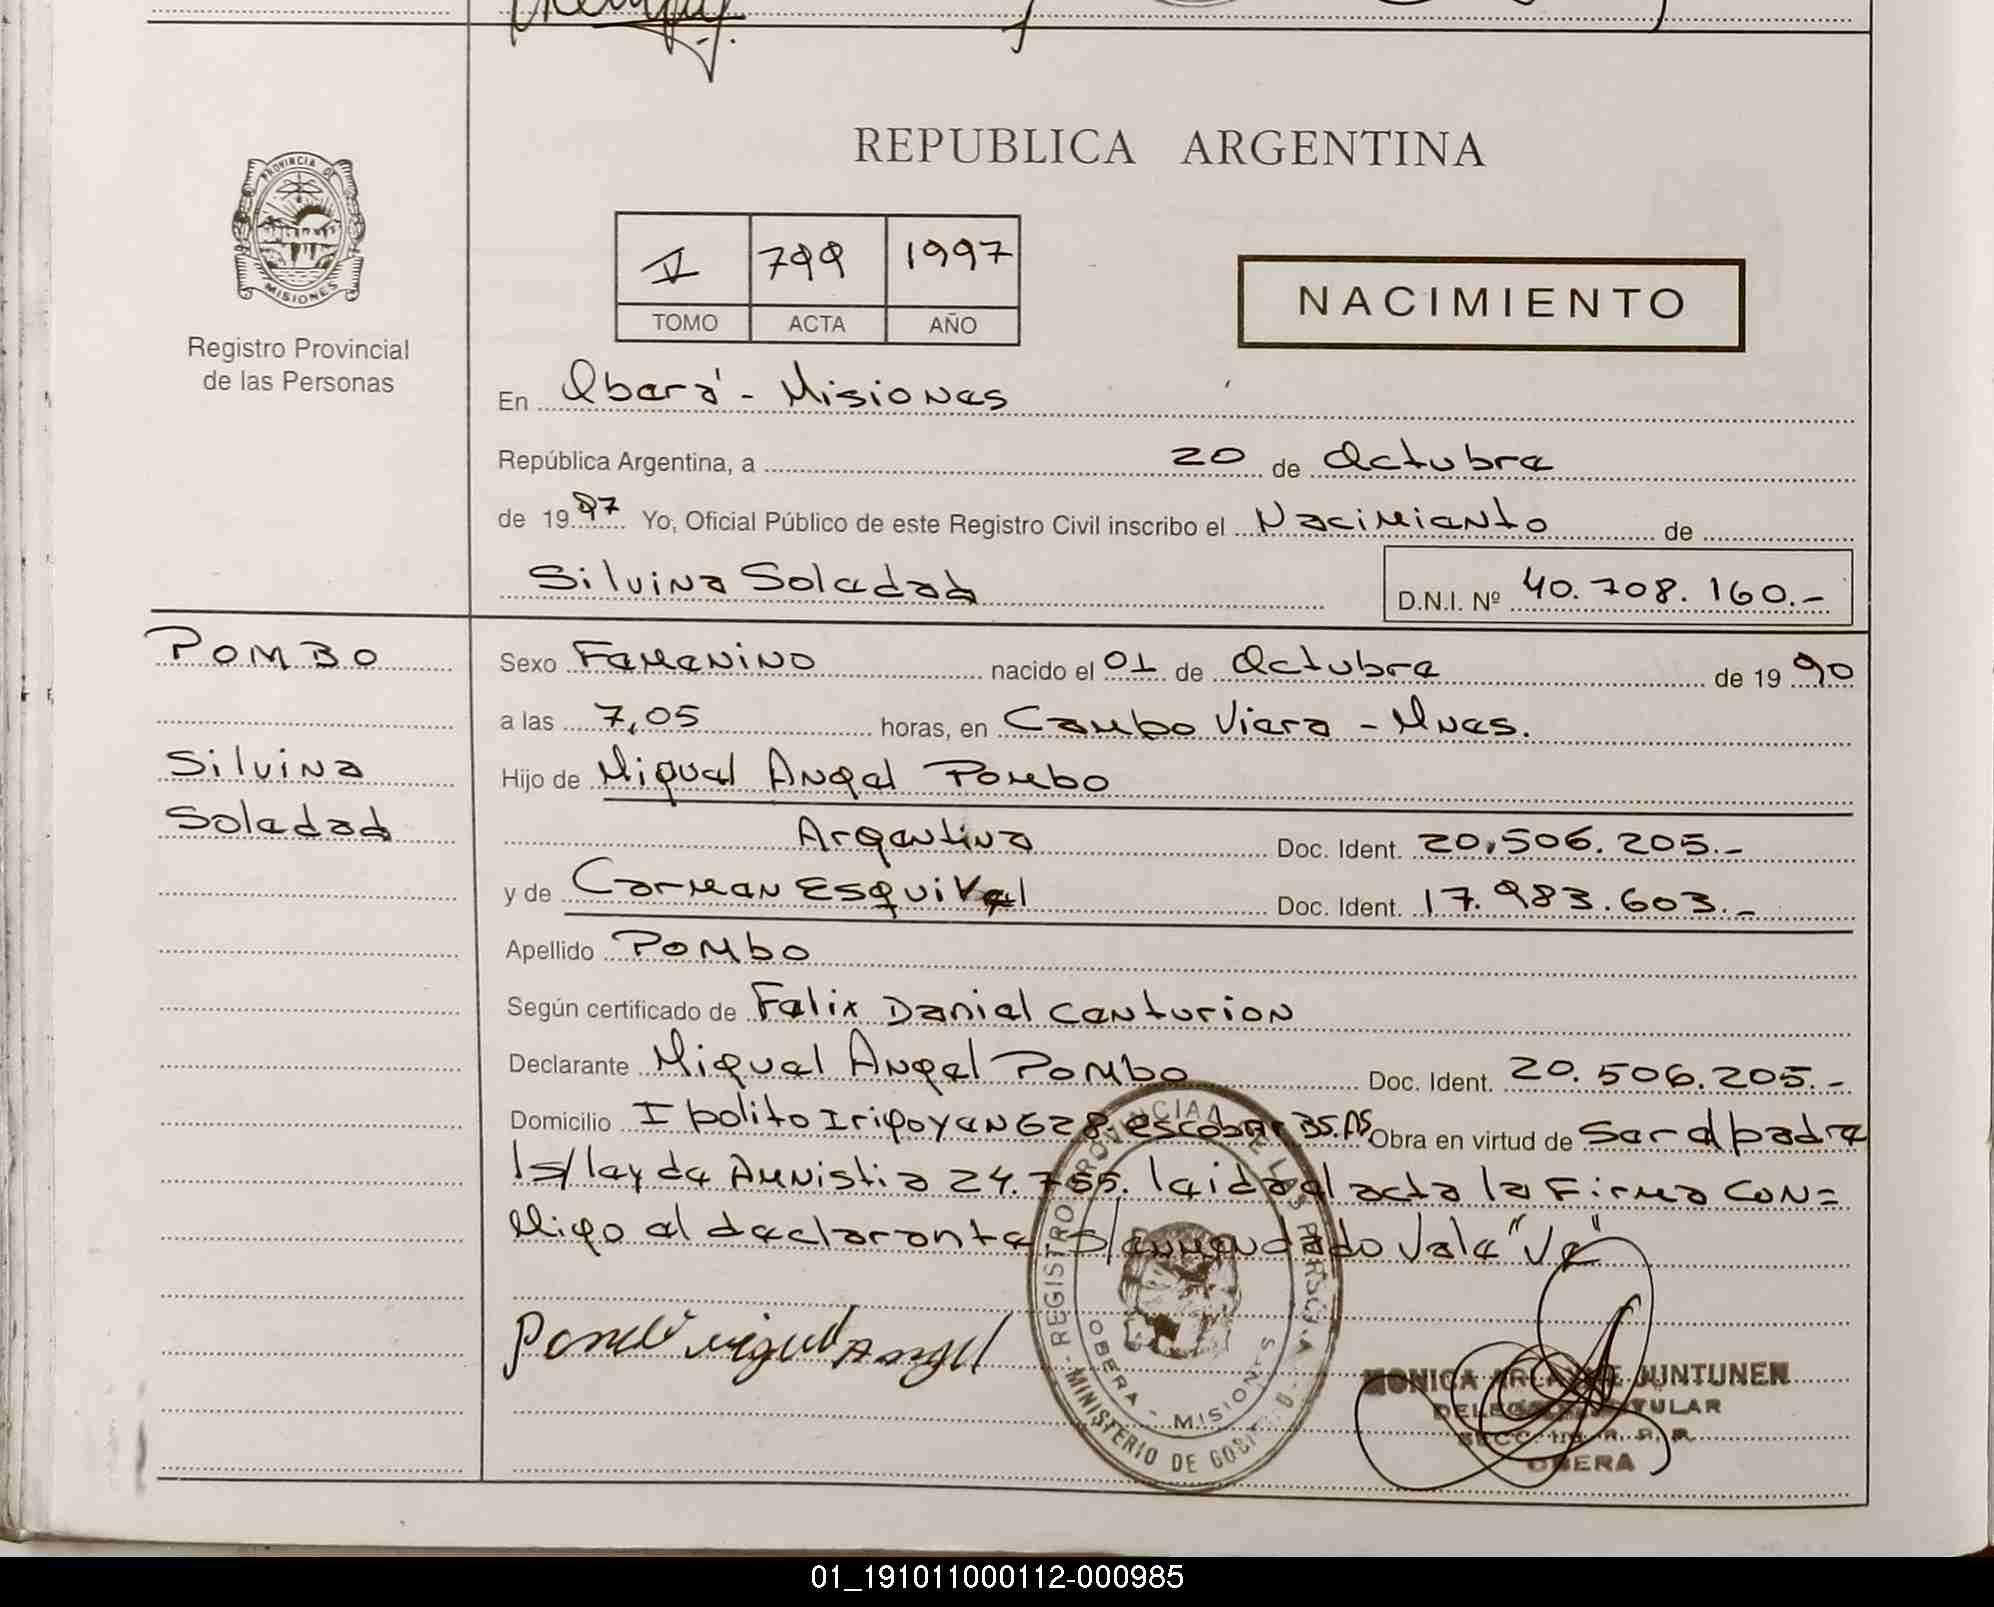 REPUBLICA ARGENTINA
PROVINCIA DE
MISIONES
Registro Provincial
de las Personas
V 799 1997
TOMO ACTA AÑO
NACIMIENTO
En Oberá - Misiones
República Argentina, a 20 de Octubre
de 1997 Yo, Oficial Público de este Registro Civil inscribo el Nacimiento de
Silvina Soledad D.N.I. Nº 40.708.160.-
POMBO
Silvina
Soledad
Sexo Femenino nacido el 01 de Octubre de 1990
a las 7,05 horas, en Campo Viera - Mnes.
Hijo de Miguel Angel Pombo
Argentina Doc. Ident. 20.506.205.-
y de Carmen Esquivel Doc. Ident. 17.983.603.-
Apellido Pombo
Según certificado de Felix Daniel Centurion
Declarante Miguel Angel Pombo Doc. Ident. 20.506.205.-
Domicilio Ipolito Irigoyen 628. escobar BS.AS Obra en virtud de Ser el padre
Is/ley de Amnistia 24.755. leida el acta la Firma con=
migo el declarante s/enmendado Vale "Ve"
Pombo Miguel Angel
REGISTRO PROVINCIAL DE LAS PERSONAS
OBERA - MISIONES
MINISTERIO DE GOBIERNO
MONICA JUNTUNEN
TITULAR
OBERA
01_191011000112-000985